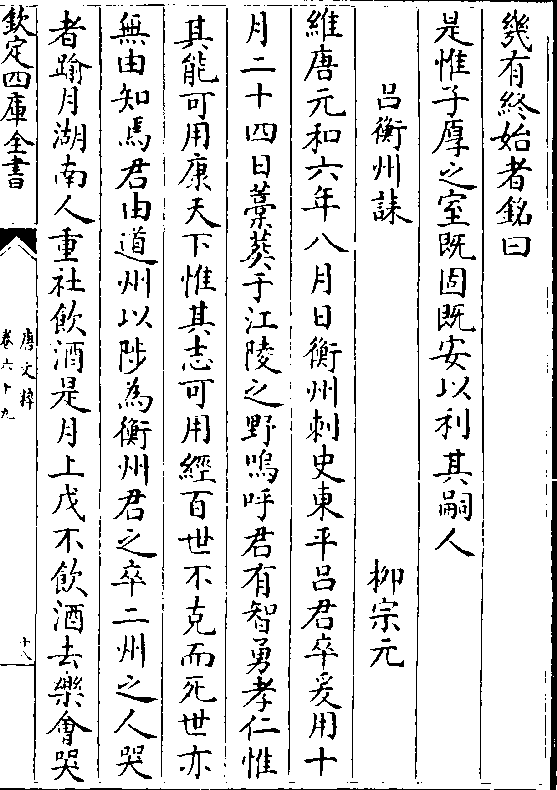 幾有終始者銘曰
是惟子厚之室既固既安以利其嗣人
呂衡州誄 柳宗元
維唐元和六年八月日衡州刺史東平呂君卒爰用十
月二十四日藁葬于江陵之野嗚呼君有智勇孝仁惟
其能可用康天下惟其志可用經百世不克而死世亦
無由知焉君由道州以陟為衡州君之卒二州之人哭
者踰月湖南人重社飲酒是月上戊不飲酒去樂會哭
欽定四庫全書
唐文粹
卷六十九
十八